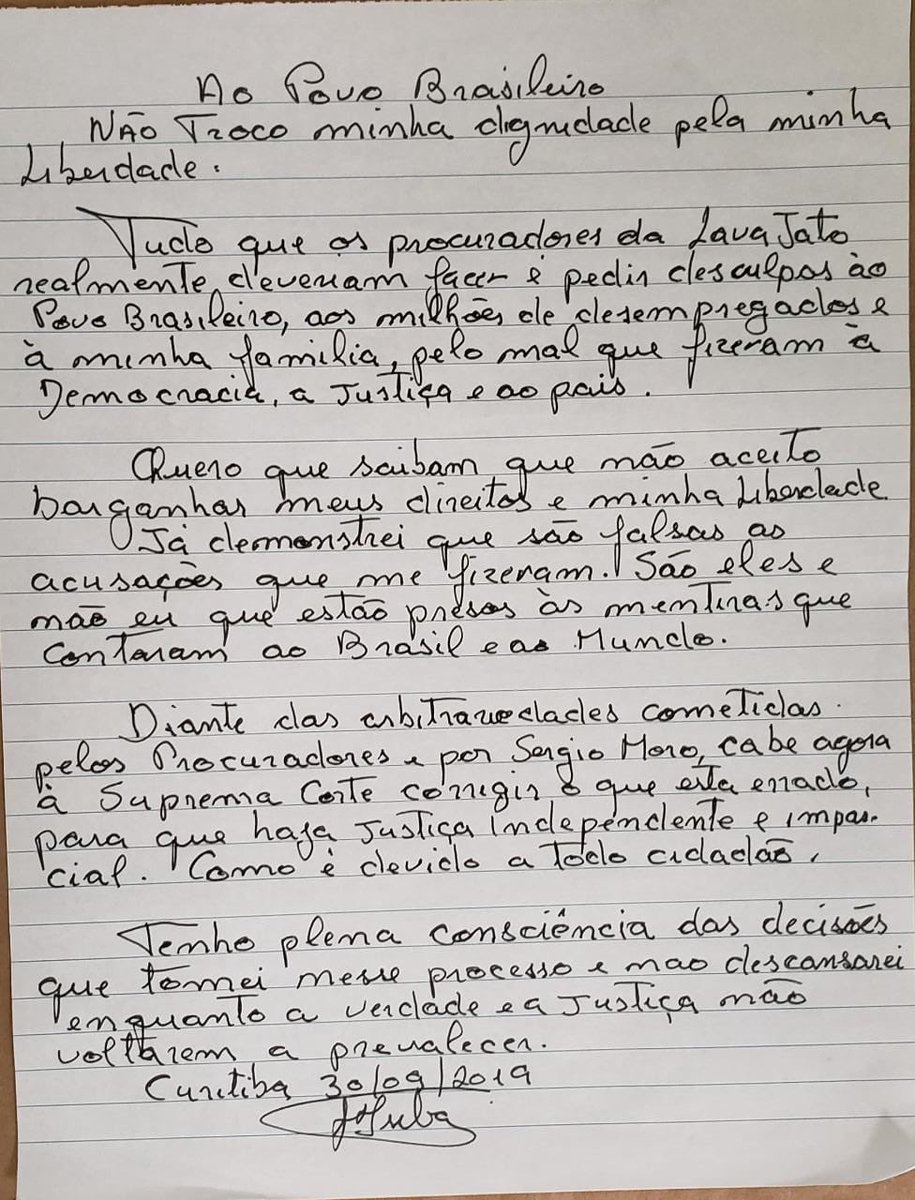 Ao Povo Brasileiro
Não Troco minha dignidade pela minha
Liberdade.
Tudo que os procuradores da Lava Jato
realmente deveriam fazer é pedir desculpas ao
Povo Brasileiro, aos milhões de desempregados e
à minha familia, pelo mal que fizeram à
Democracia, a Justiça e ao país.
Quero que saibam que não aceito
barganhar meus direitos e minha Liberdade
Já demonstrei que são falsas as
acusações que me fizeram. São eles e
não eu que estão presos às mentiras que
contaram ao Brasil e ao Mundo.
Diante das arbitrariedades cometidas
pelos Procuradores e por Sergio Moro, cabe agora
à Suprema Corte corrigir o que esta errado,
para que haja Justiça independente e impar
cial. Como é devido a todo cidadão.
Tenho plena consciência das decisões
que tomei nesse processo e não descansarei
enquanto a verdade e a Justiça não
voltarem a prevalecer.
Curitiba 30/09/2019